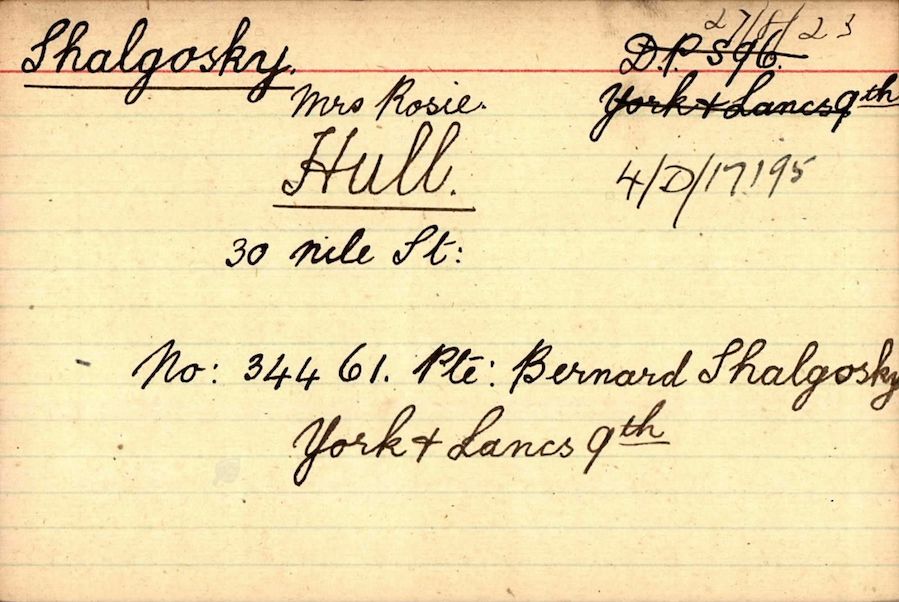 Shalgosky.
27/8/23
D.P. 596.
Mrs Rosie.
York & Lancs 9th
Hull.
4/D/17195
30 Nile St:
No: 34461. Pte: Bernard Shalgosky
York & Lancs 9th